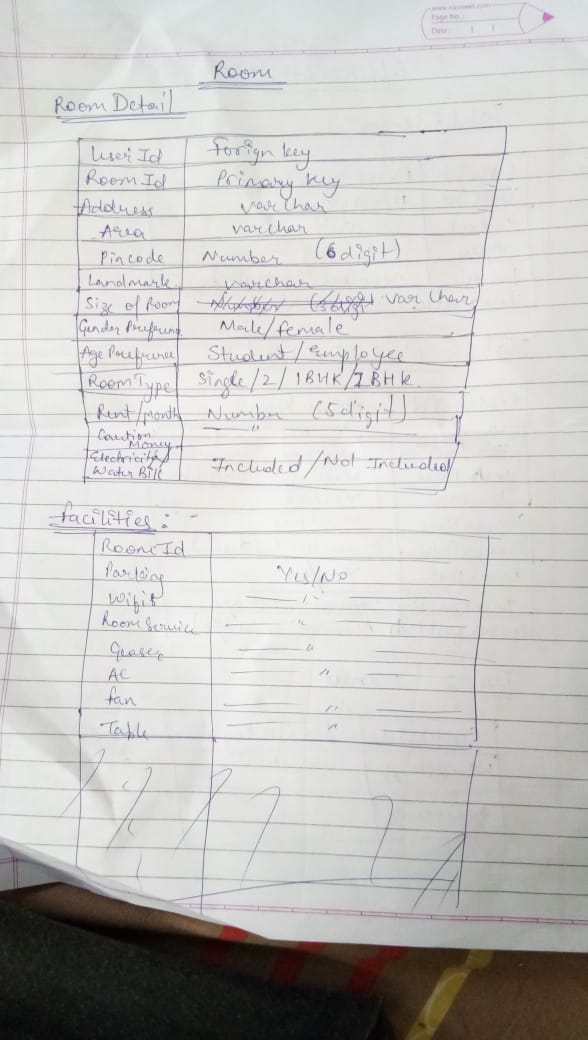 Page No.:
Date:
Room
Room Detail
User Id Forign key
Room Id Primary key
Address varchar
Area varchar
Pincode Number (6 digit)
Landmark varchar
Size of Room varchar
Gender Prefrence Male/female
Age Prefrence Student/employee
Room Type Single/2/1BHK/2BHK
Rent/Month Number (5 digit)
Caution Money — " —
Electricity/ Water Bill Included/Not Included
facilities :-
Room Id
Parking Yes/No
Wifi — " —
Room Service — " —
Geaser — " —
AC — " —
fan — " —
Table — " —